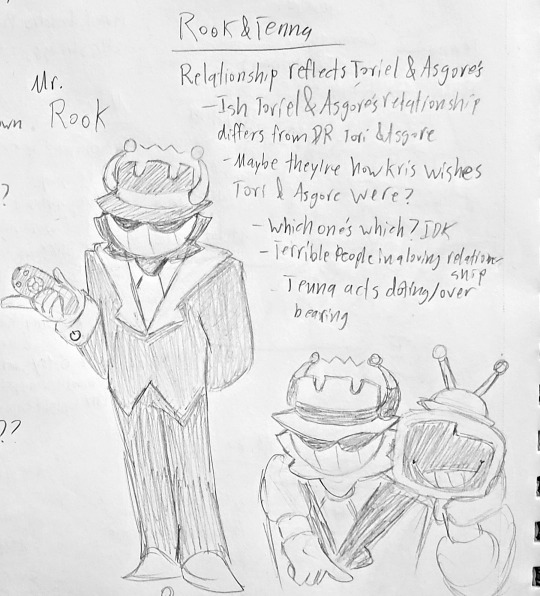 Rook & Tenna
Relationship reflects Toriel & Asgore's
- Ish Toriel & Asgore's relationship
differs from DR Tori & Asgore
- Maybe they're how kris wishes
Tori & Asgore were?
- which one's which? IDK
- Terrible People in a loving relation-
ship
- Tenna acts doting/over
bearing
Mr.
Rook
own
?
??